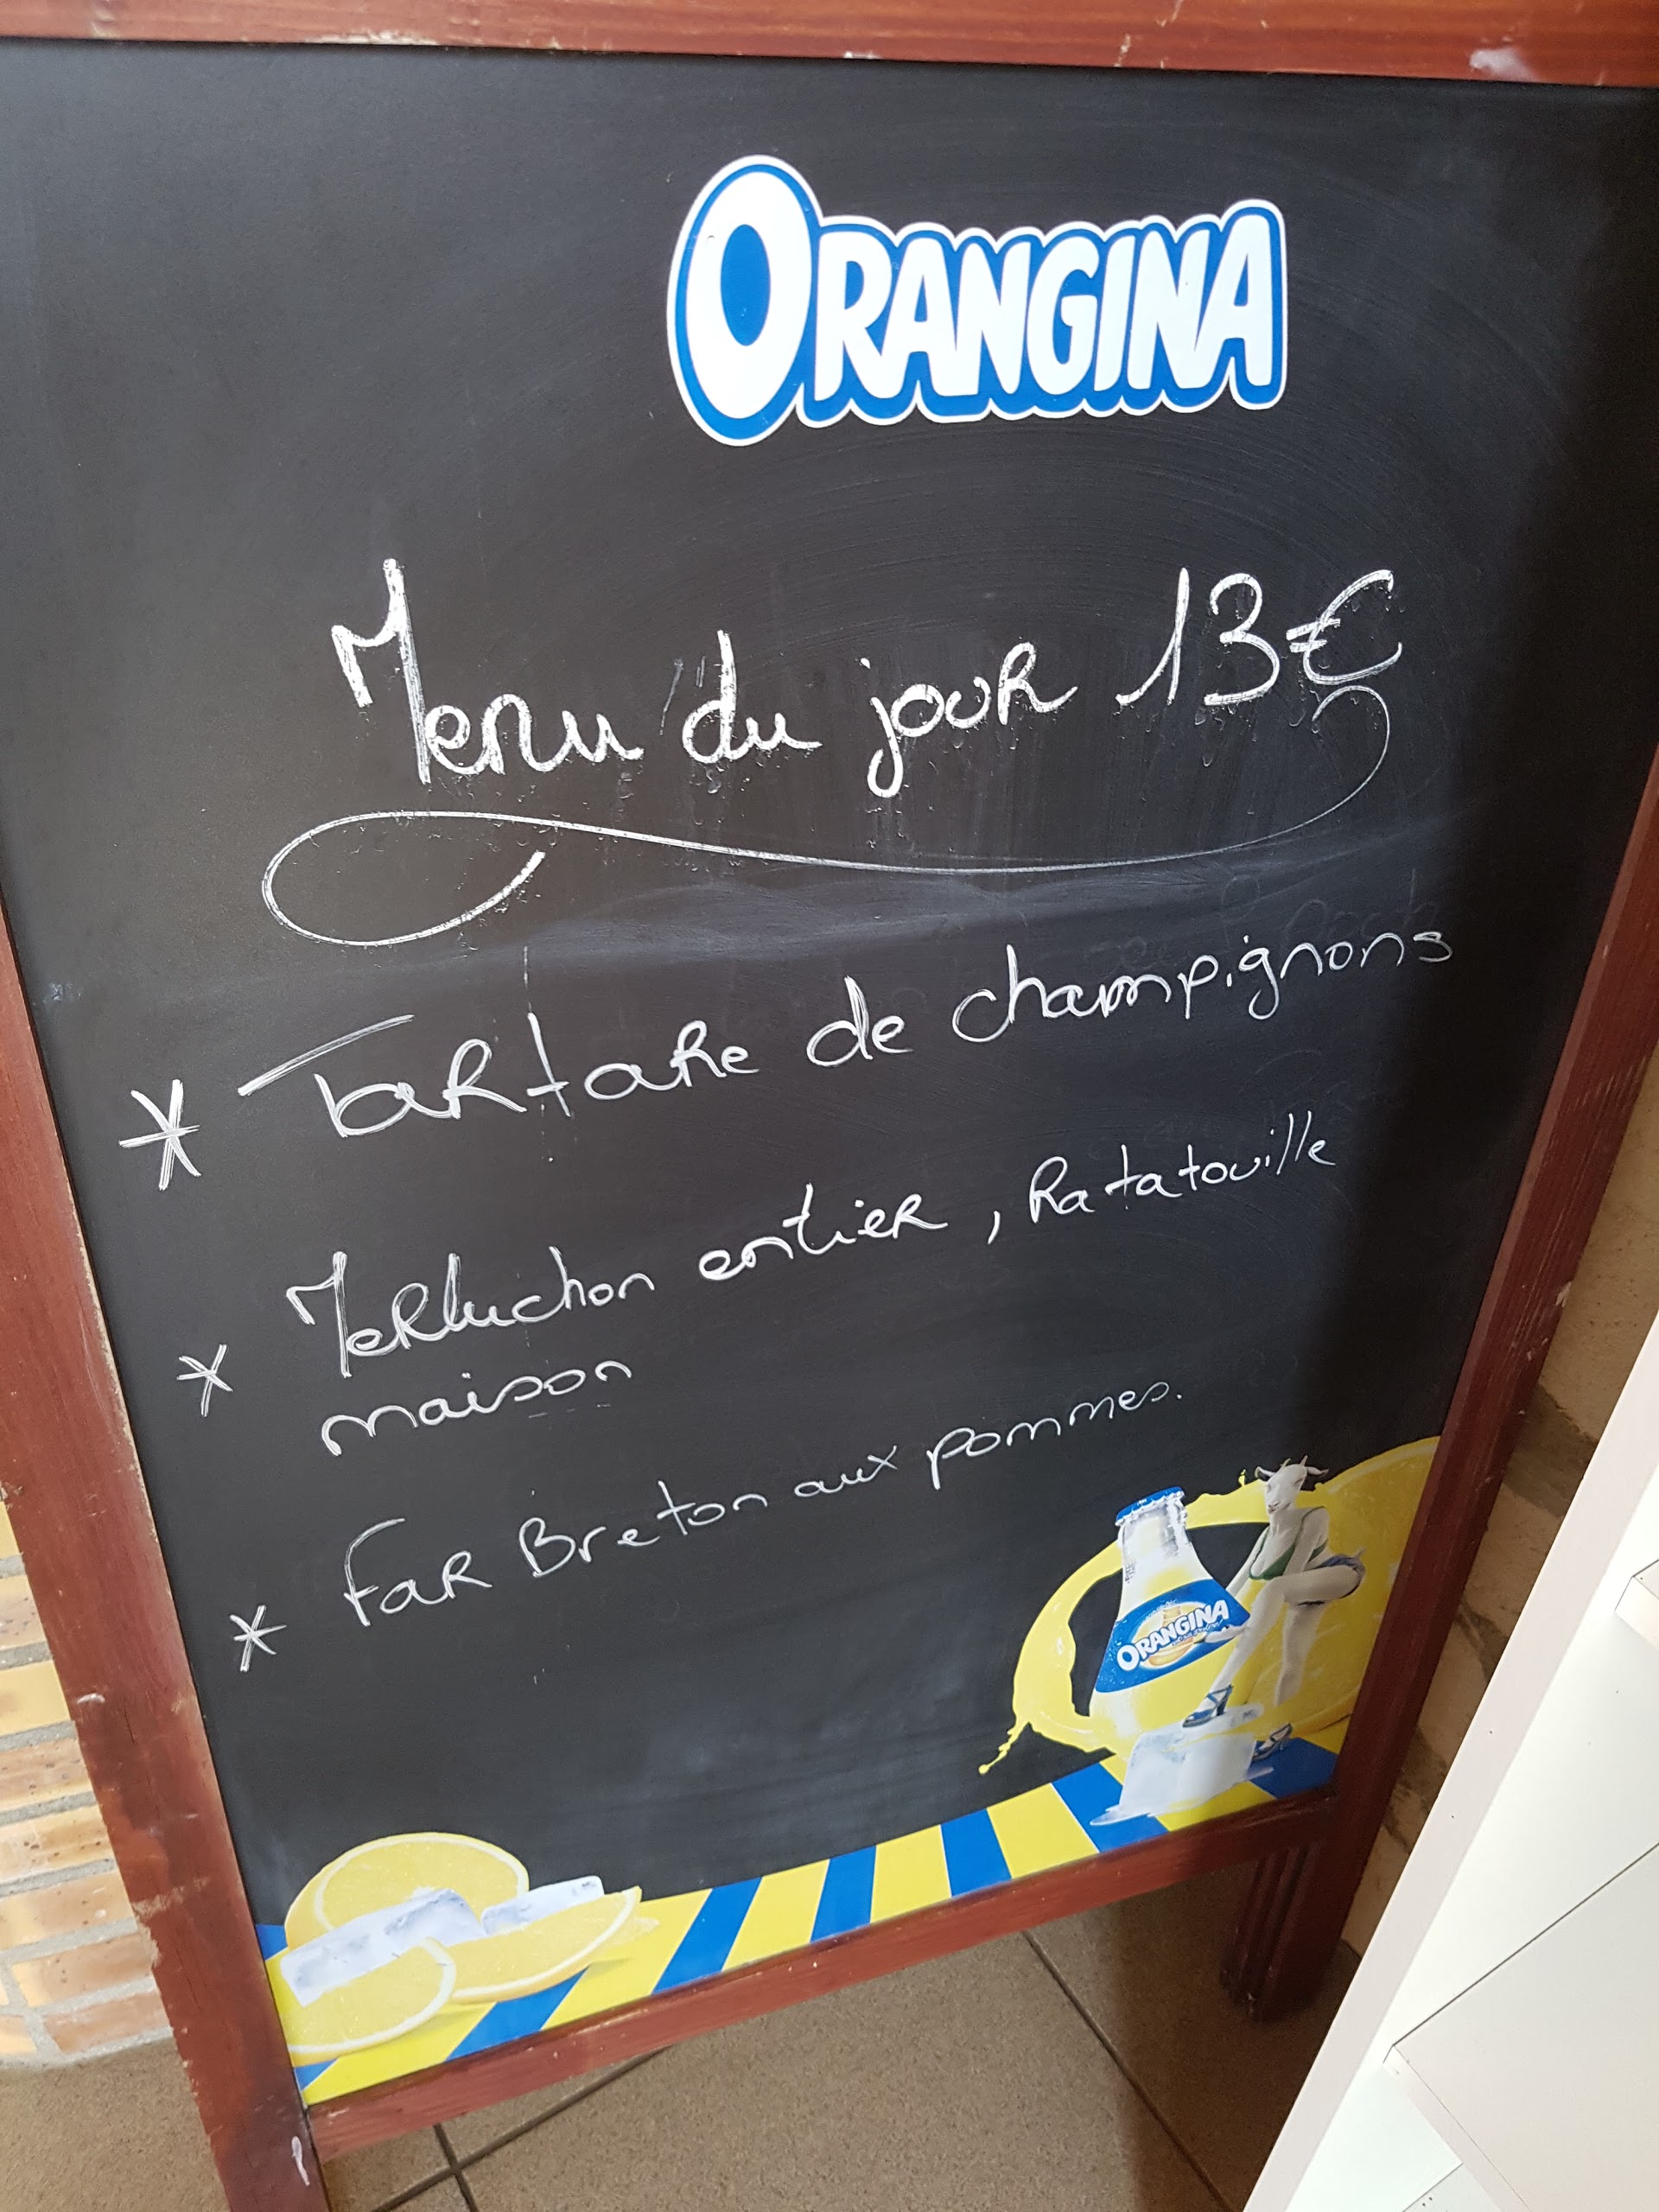 ORANGINA
Menu du jour 13€
* Tartare de champignons
* Merluchon entier, Ratatouille
maison
* Far Breton aux pommes.
ORANGINA